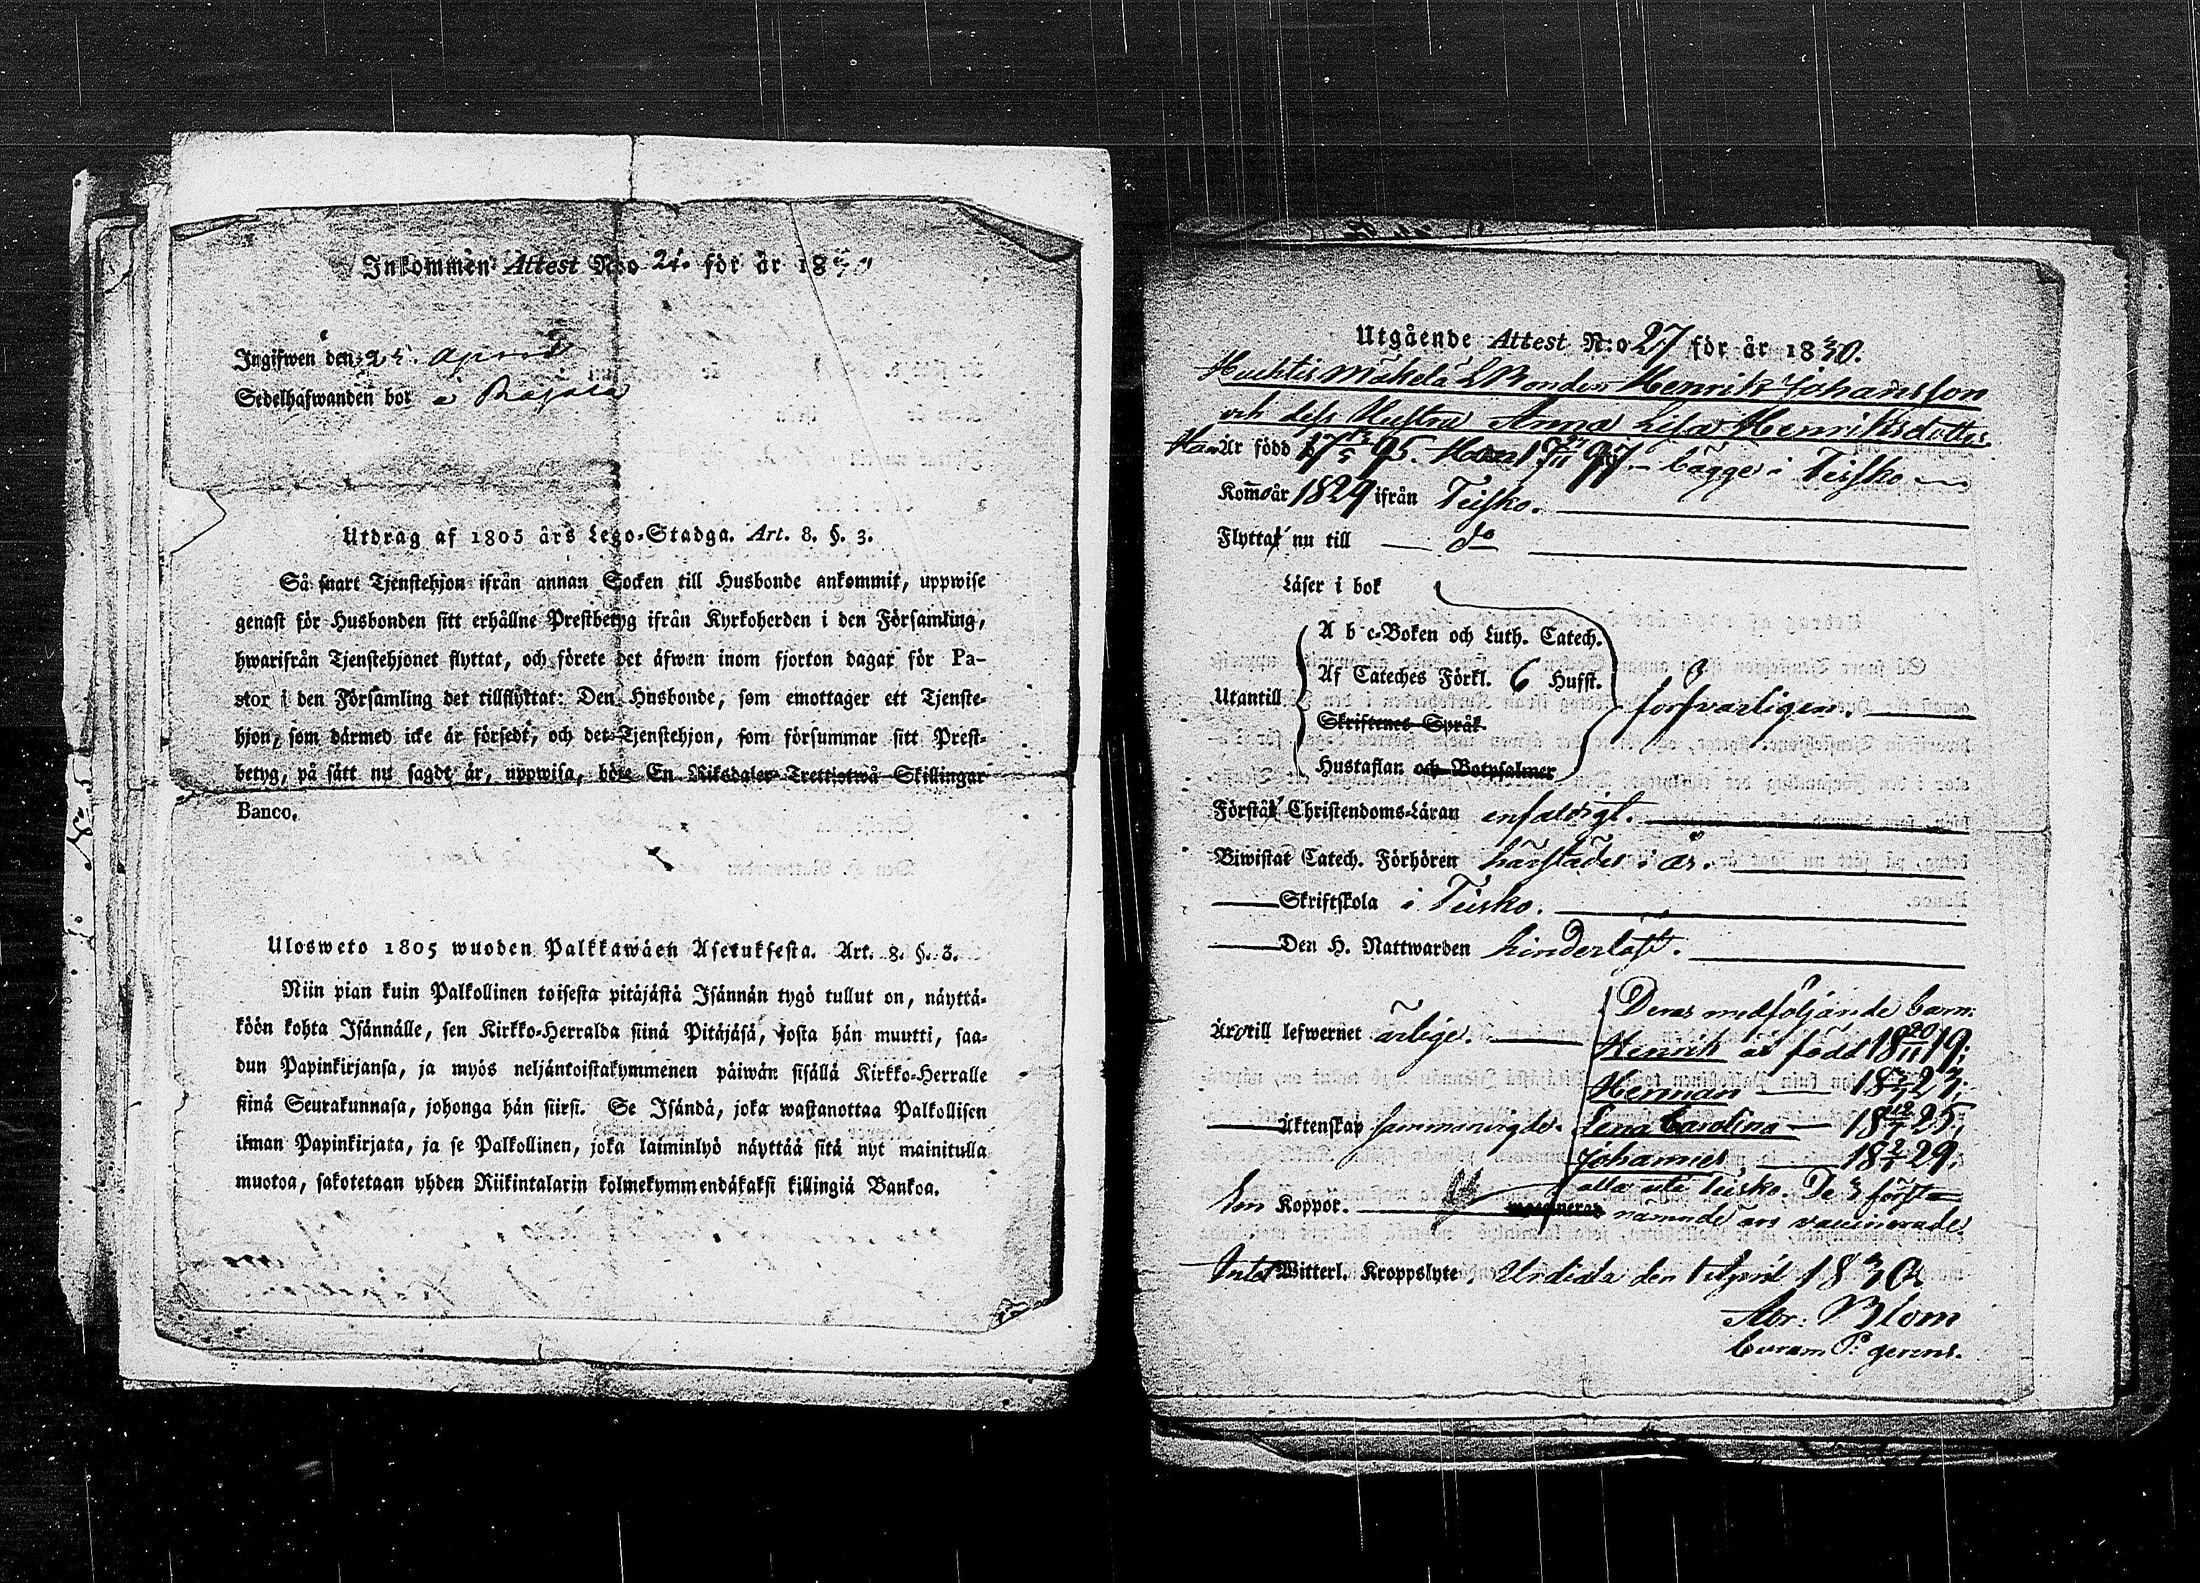 Inkommen Attest N:o 21. för år 1830
Ingifwen den 25. April
Sedelhafwanden bor i
Utdrag af 1805 års Lego-Stadga. Art. 8. §. 3.
Så snart Tjenstehjon ifrån annan Socken till Husbonde ankommit, uppwise
genast för Husbonden sitt erhållne Prestbetyg ifrån Kyrkoherden i den Församling,
hwarifrån Tjenstehjonet flyttat, och förete det äfwen inom fjorton dagar för Pa-
stor i den Församling det tillflyttat: Den Husbonde, som emottager ett Tjenste-
hjon, som därmed icke är försedt, och det Tjenstehjon, som försummar sitt Prest-
betyg, på sätt nu sagdt är, uppwisa, böte En Riksdaler Trettjotwå Skillingar
Banco.
Ulosweto 1805 wuoden Palkkawäen Asetuksesta. Art. 8. §. 3.
Niin pian kuin Palkollinen toisesta pitäjästä Isännän tygö tullut on, näyttä-
köön kohta Isännälle, sen Kirkko-Herralda siinä Pitäjäsä, josta hän muutti, saa-
dun Papinkirjansa, ja myös neljäntoistakymmenen päiwän sisällä Kirkko-Herralle
siinä Seurakunnasa, johonga hän siirsi. Se Isändä, joka wastanottaa Palkollisen
ilman Papinkirjata, ja se Palkollinen, joka laiminlyö näyttää sitä nyt mainitulla
muotoa, sakotetaan yhden Riikintalarin kolmekymmendäkaksi killingiä Bankoa.
Utgående Attest N:o 27 för år 1830.
Huhtis Mäkelä Bonden Henrik Johansson
och dess Hustru Anna Lisa Henriksdotter.
Han Är född 17 13/5 95. Hon 17 21/11 97. bägge i Teisko
Kommo år 1829 ifrån Teisko.
Flytta nu till do
Läser i bok
A b c-Boken och Luth. Catech.
Af Cateches Förkl. 6 Hufst.
Utantill
Skriftenes Språk.
försvarligen.
Hustaflan och Botpsalmer
Förstå Christendoms-Läran enfaldigt.
Biwistat Catech. Förhören härstädes i år.
Skriftskola i Teisko.
Den H. Nattwarden hinderlöst.
Deras medföljande barn:
Äro till lefwernet ärlige.
Henrik är född 18 20/11 19;
Herman 18 23;
Äktenskap sammanvigde. Lena Carolina 18 25;
Johannes, 18 2/1 29.
alla uti Teisko. De 3 första
Koppor.
nämnde äro vaccinerade
Intet Witterl. Kroppslyte, Urdiala den 1 April 1830.
Abr: Blom
Curam P: gerens.